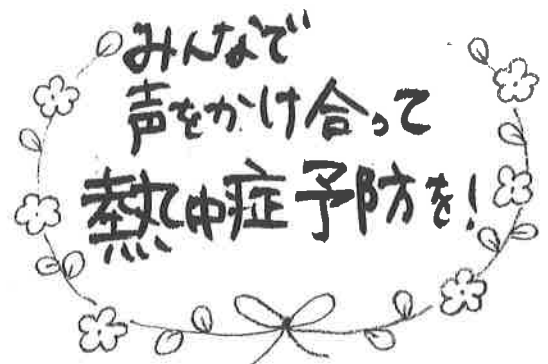 みんなで
声をかけ合って
熱中症予防を!